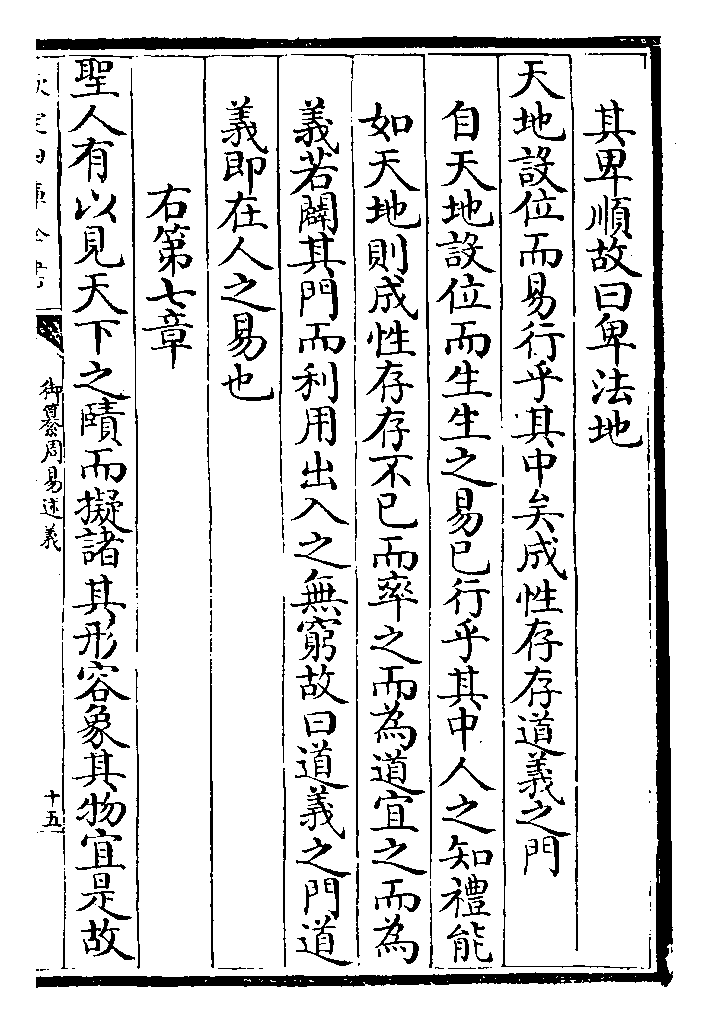 其卑順故曰卑法地
天地設位而易行乎其中矣成性存存道義之門
自天地設位而生生之易已行乎其中人之知禮能
如天地則成性存存不已而率之而為道宜之而為
義若闢其門而利用出入之無窮故曰道義之門道
義即在人之易也
右第七章
聖人有以見天下之賾而擬諸其形容象其物宜是故
御纂周易述義
十五